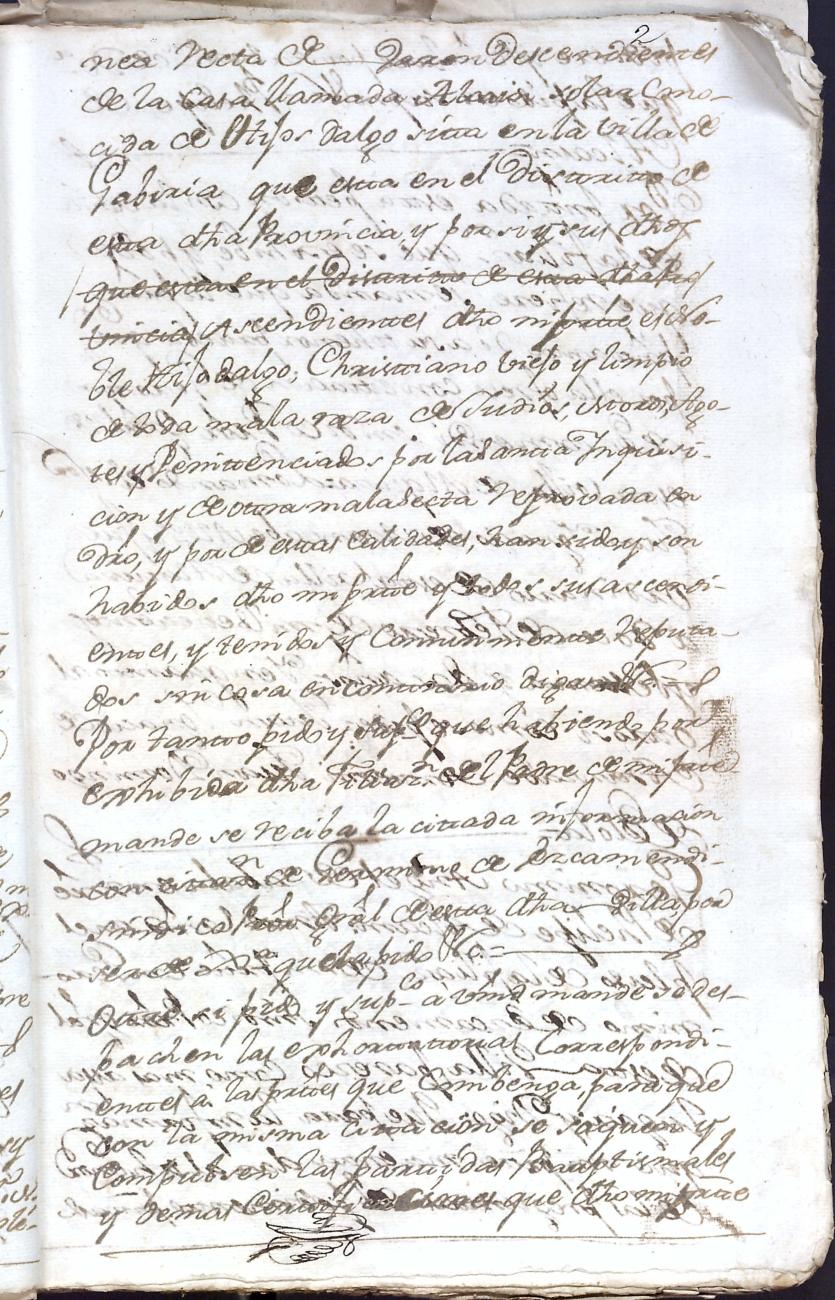 2
nea recta de Varon Descendientes
de la Casa llamada solar Cono-
cida de Hijos dalgo sitta en la villa de
Gabiria que esta en el Districto de
esta dha Provincia, y por si y sus dhos
que esta en el Districto de esta dha Pro
vincia Ascendientes dho mi parte es No-
ble Hijo dalgo, Christiano viejo y limpio
de toda mala raza de Judios, Moros, Ago-
tes y Penitenciados por la Santa Inquisi-
cion y de otra mala Secta reprovada en
dro, y por de estas Calidades, han sido y son
habidos dho mi parte y todos sus ascendi-
entes, y tenidos y Comunmente reputa-
dos sin cosa en contrario
Por tanto pido y supco que habiendo por
exhibida dha del Padre de mi parte
mande se reciba la cittada informacion
con cittan de Geronimo de Ezcamendi-
sindico Pror Gral de esta dha Villa, por
ser de que la pido
Otro si pido y supco a vmd mande se des-
pachen las exhortatorias Correspondi-
entes a las partes que Combenga, para que
con la misma Citacion se saquen y
Compulsen las partidas Bauptismales
y demas que dho mi parte